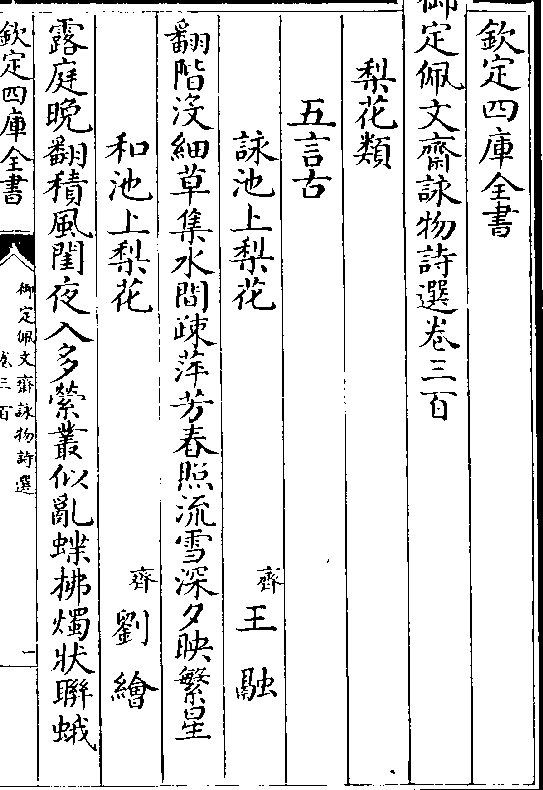 欽定四庫全書
御定佩文齋詠物詩選卷三百
梨花類
五言古
詠池上梨花
齊
王融
翻階沒細草集水間疎萍芳春照流雪深夕映繁星
和池上梨花
齊
劉繪
露庭晚翻積風閨夜入多縈叢似亂蝶拂燭狀聯蛾
欽定四庫全書
御定佩文齋詠物詩選
卷三百
一